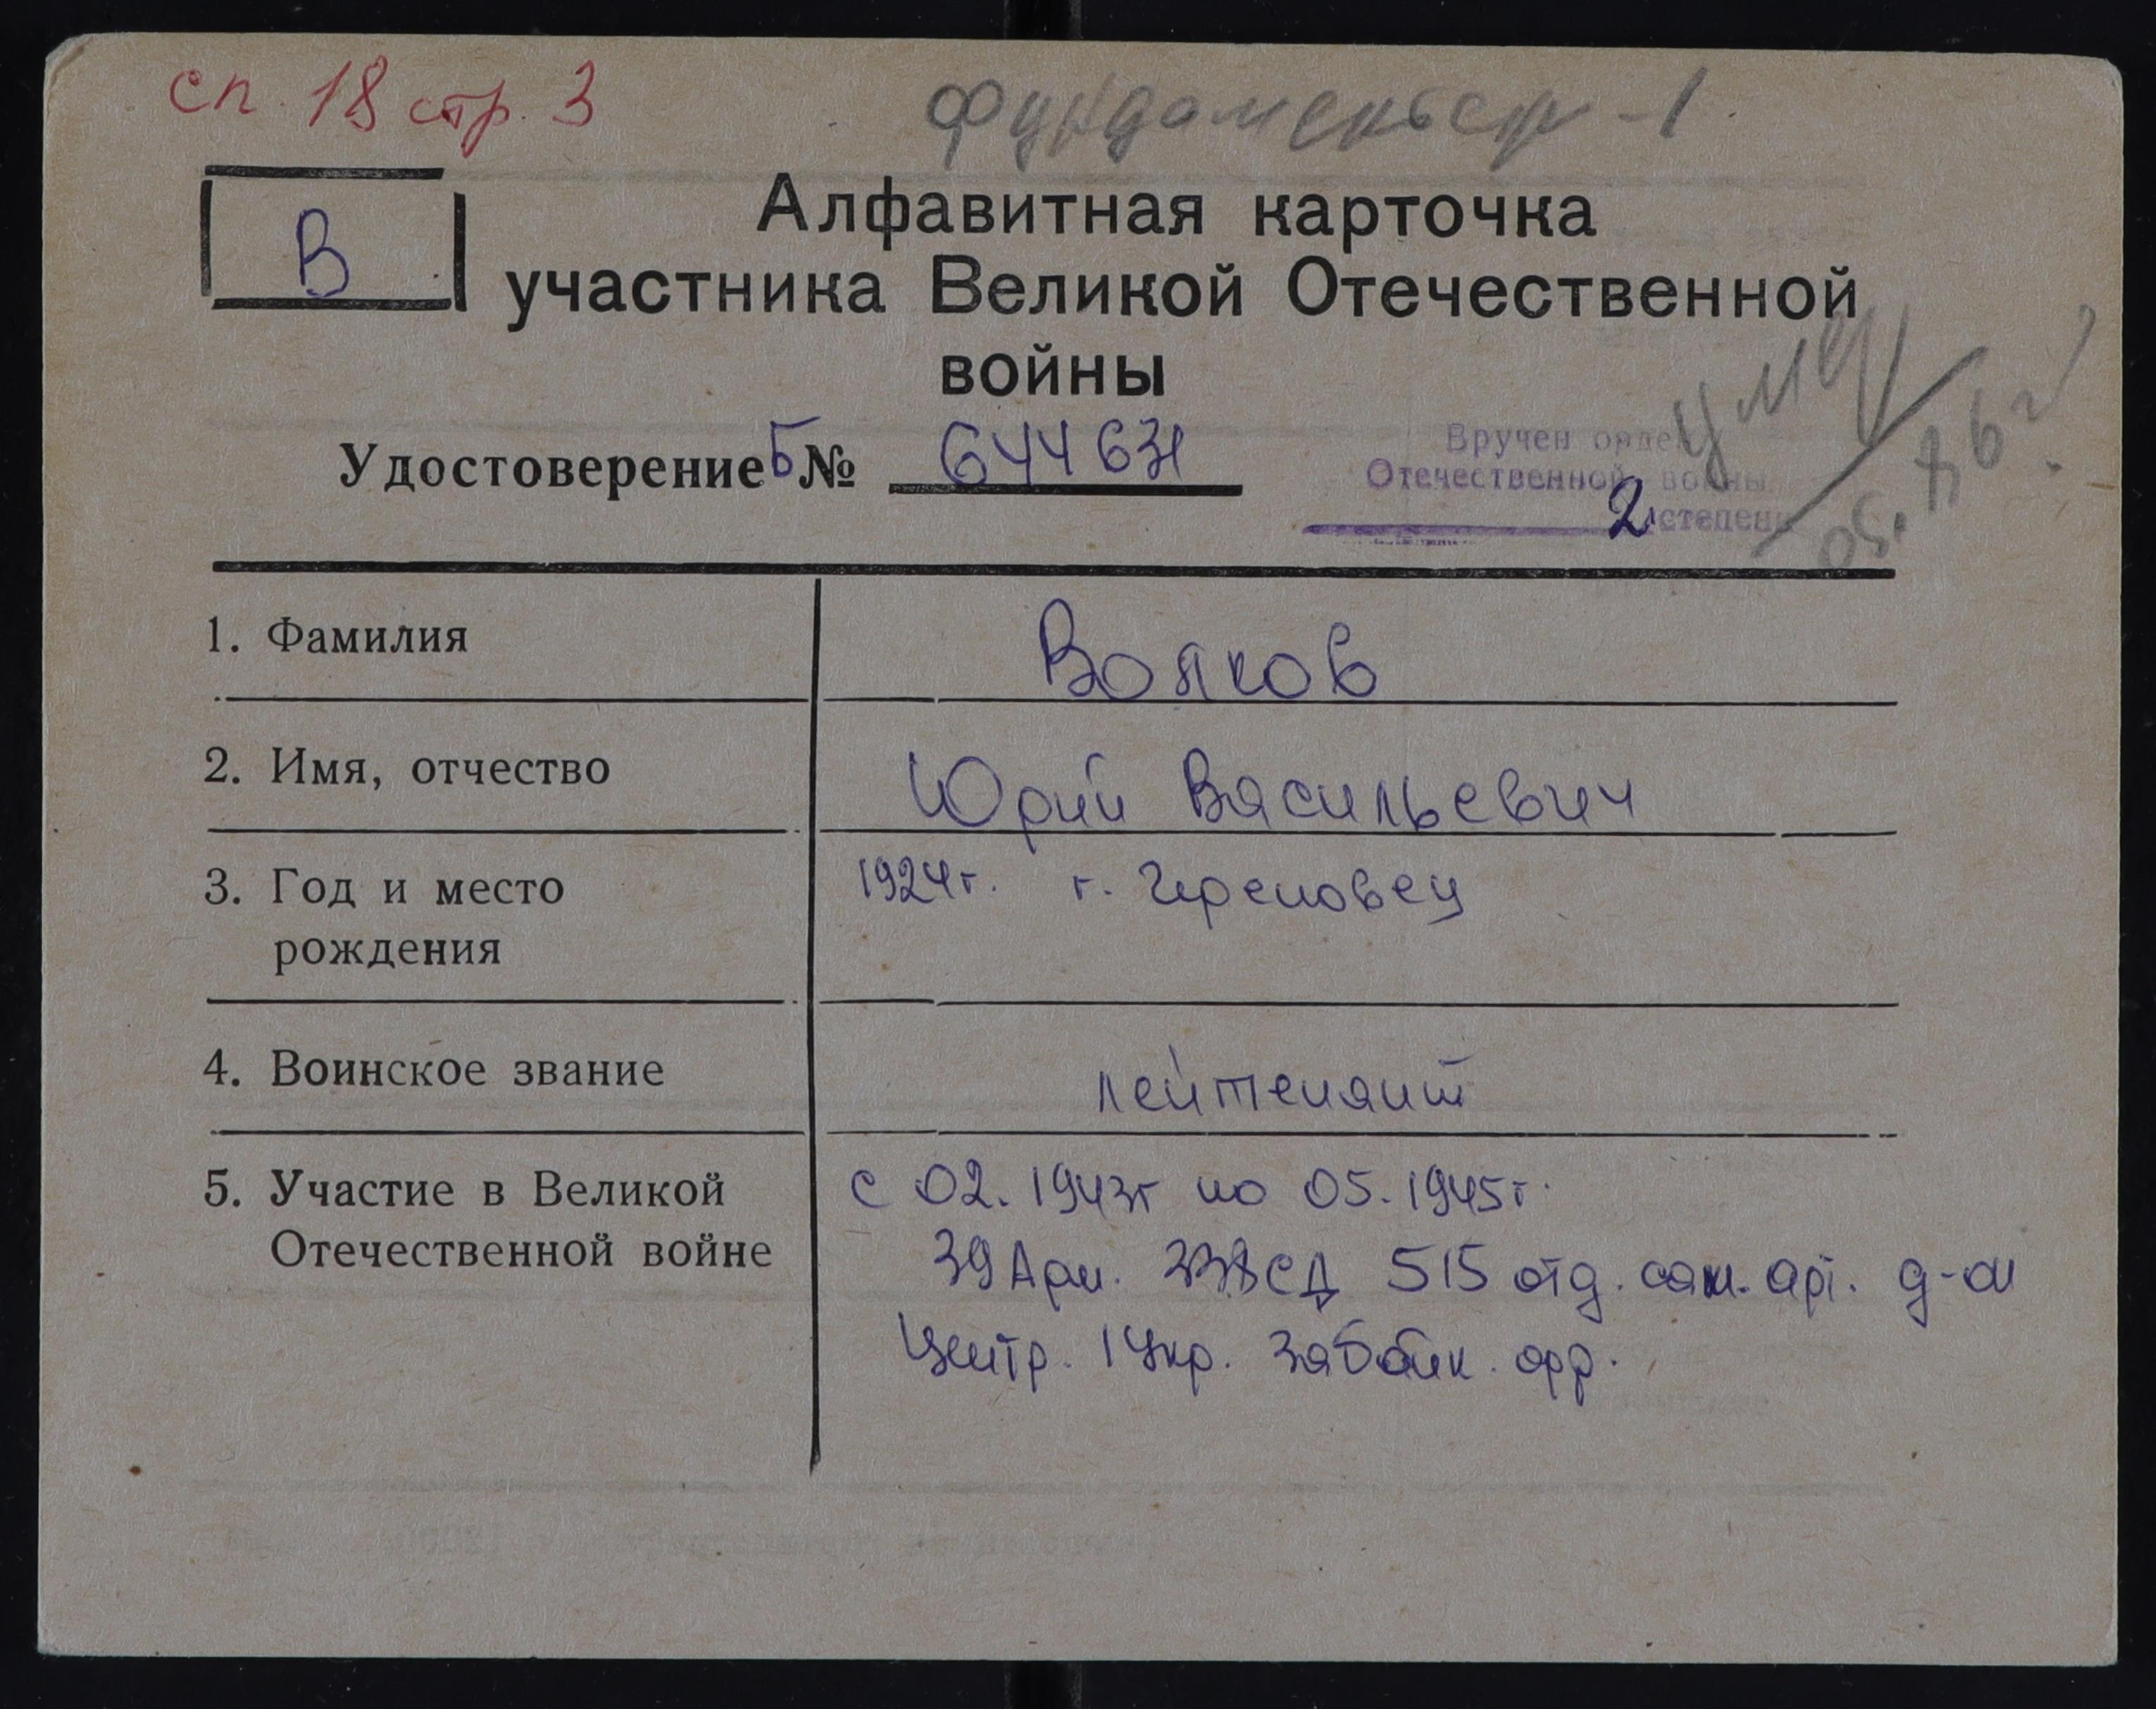 сп. 18 стр. 3
В
Алфавитная карточка
участника Великой Отечественной
войны
Удостоверение Б №
Вручен орден
Отечественной войны
2 степени
умер
1. Фамилия
Вояков
2. Имя, отчество
Юрий Васильевич
3. Год и место
рождения
1924г. г. Череповец
4. Воинское звание
лейтенант
5. Участие в Великой
Отечественной войне
с 02.1943г по 05.1945г.
39 Арм. 338 СД 515 отд. сам. арт. д-он
Центр. 1 Укр. Забайк. фр.